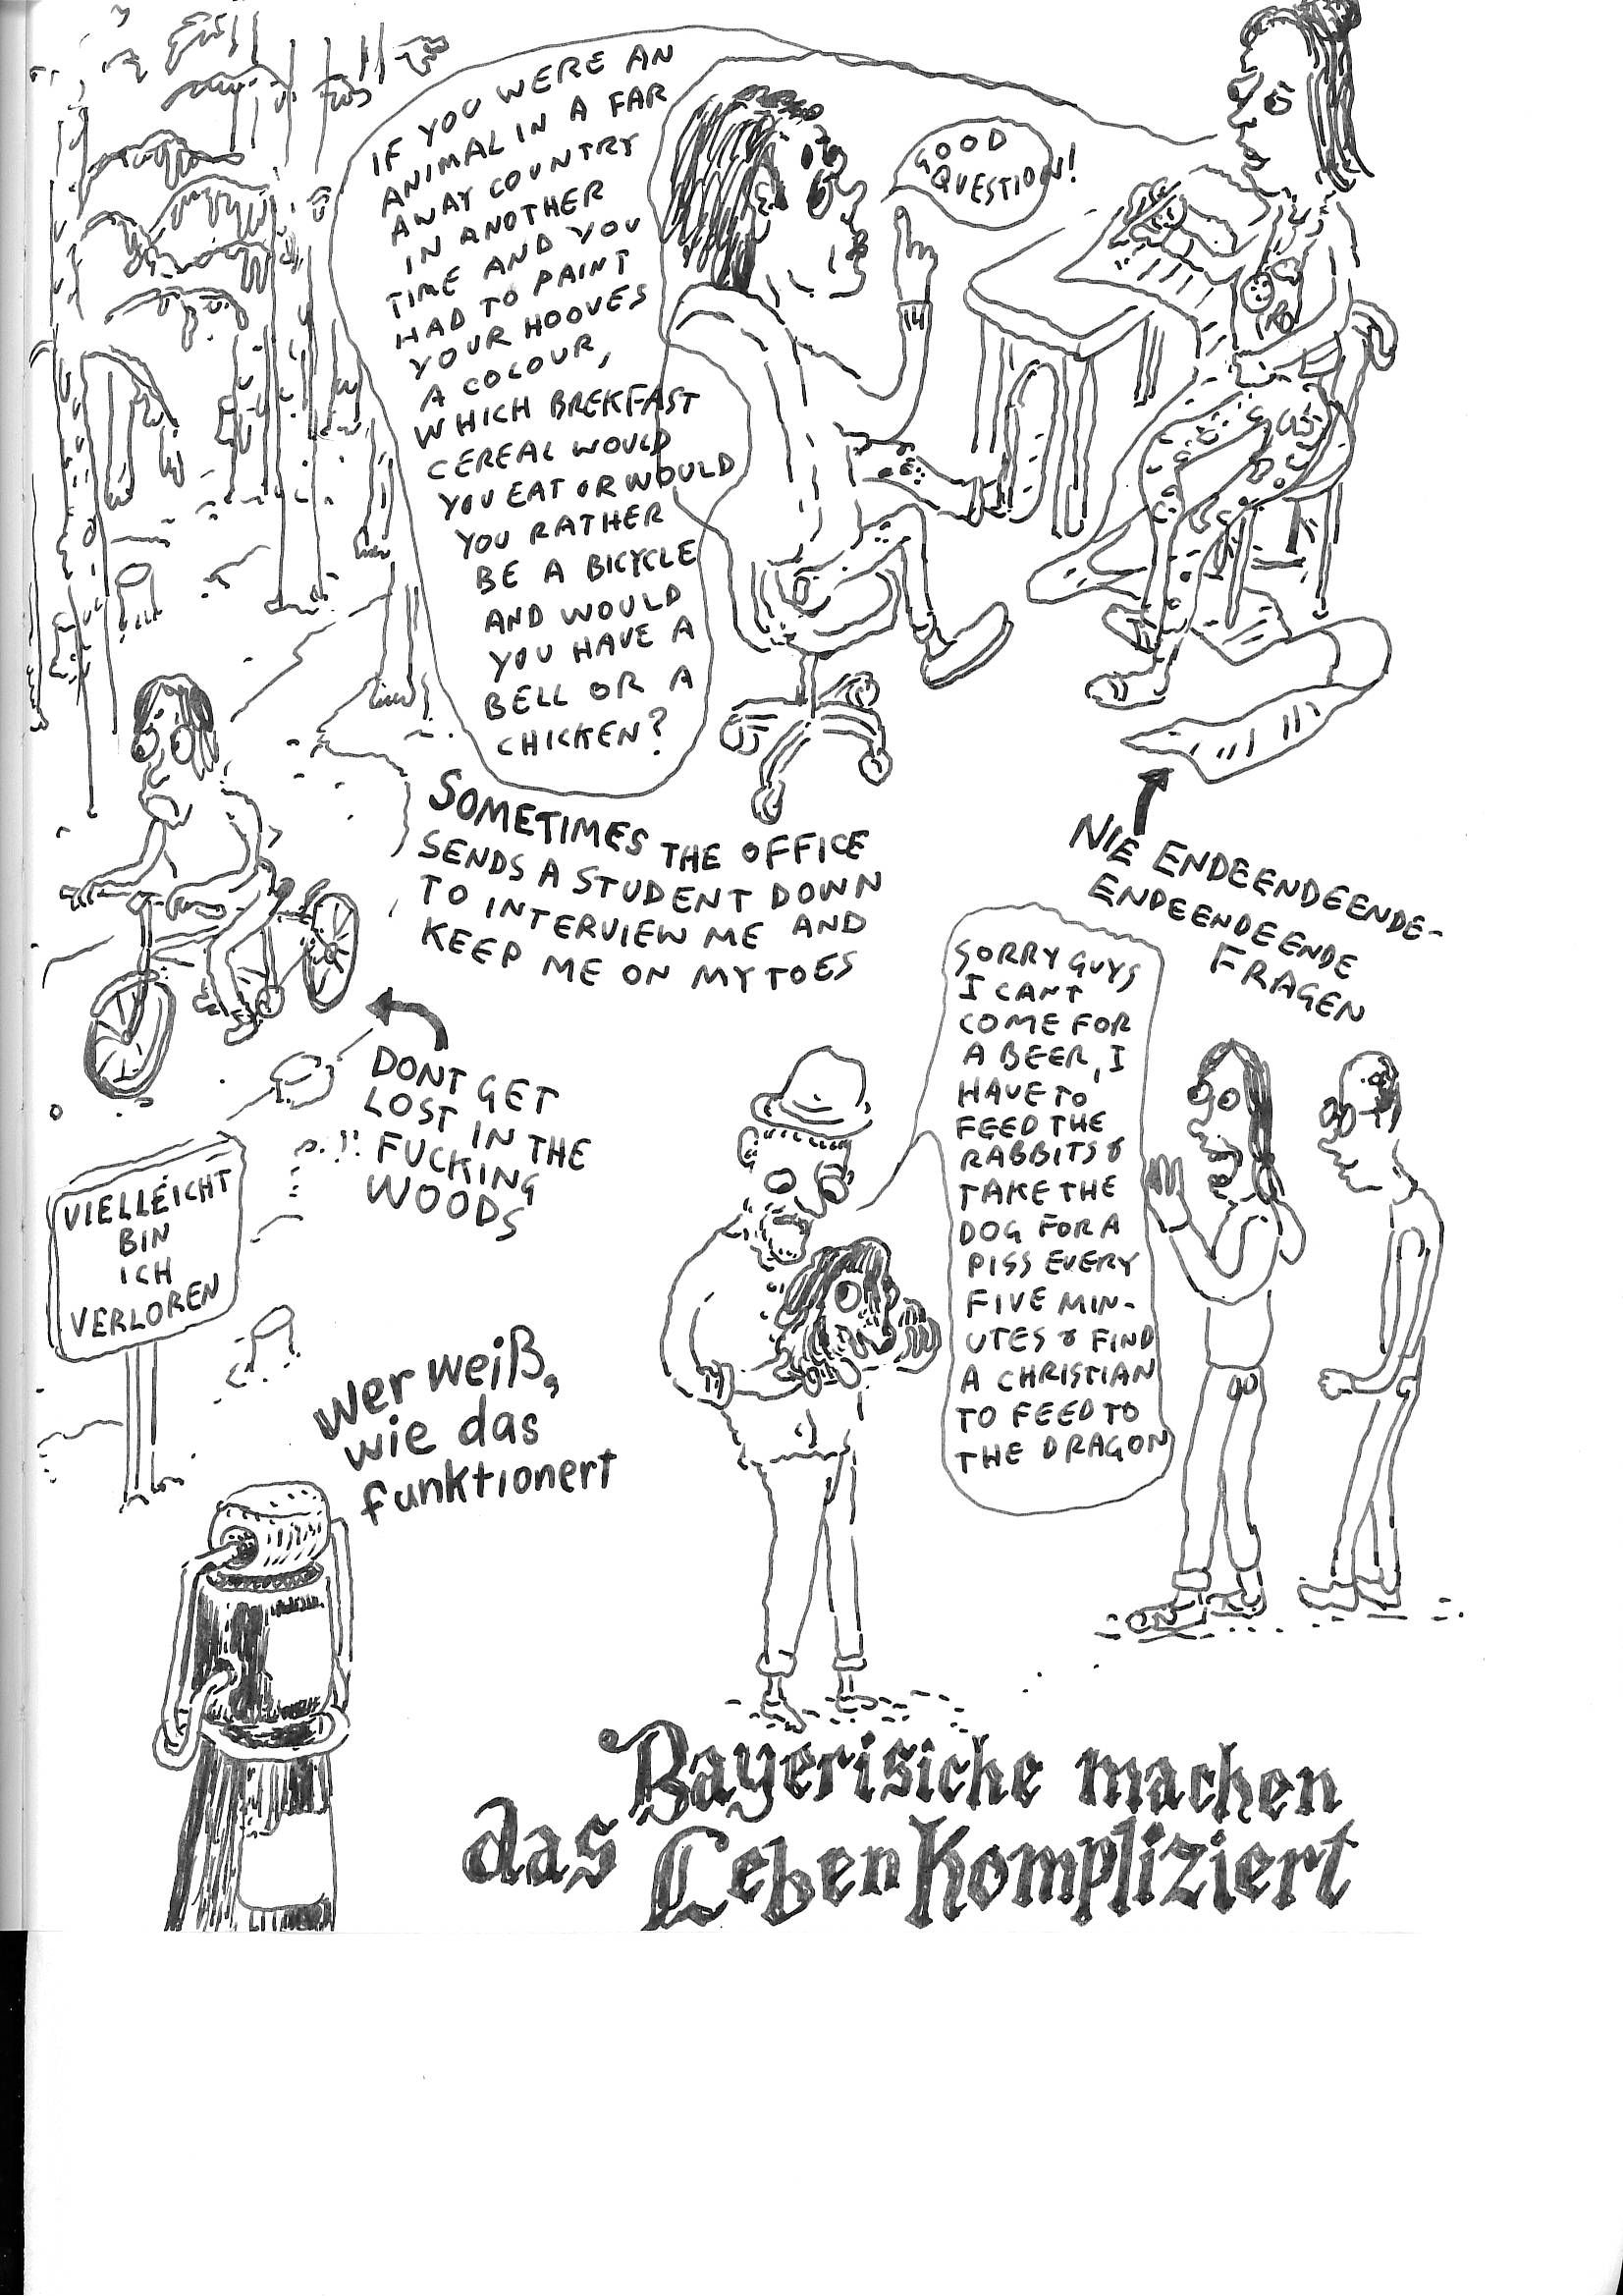 IF YOU WERE AN
ANIMAL IN A FAR
AWAY COUNTRY
IN ANOTHER
TIME AND YOU
HAD TO PAINT
YOUR HOOVES
A COLOUR,
WHICH BREKFAST
CEREAL WOULD
YOU EAT OR WOULD
YOU RATHER
BE A BICYCLE
AND WOULD
YOU HAVE A
BELL OR A
CHICKEN?
GOOD
QUESTION!
SOMETIMES THE OFFICE
SENDS A STUDENT DOWN
TO INTERVIEW ME AND
KEEP ME ON MY TOES
NIE ENDEENDEENDE-
ENDEENDEENDE
FRAGEN
DONT GET
LOST IN THE
FUCKING
WOODS
VIELLEICHT
BIN
ICH
VERLOREN
SORRY GUYS
I CANT
COME FOR
A BEER, I
HAVE TO
FEED THE
RABBITS &
TAKE THE
DOG FOR A
PISS EVERY
FIVE MIN-
UTES & FIND
A CHRISTIAN
TO FEED TO
THE DRAGON
wer weiß,
wie das
funktionert
Bayerisiche machen
das Leben Kompliziert